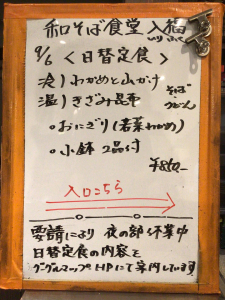 和そば食堂 入福
いり ふく
9/6 〈日替定食〉
冷)わかめと山かけ
温)きざみ昆布
そば
うどん
○おにぎり(若菜わかめ)
○小鉢 2品付
入口こちら
要請により 夜の部 休業中
日替定食の内容を
グーグルマップ、HPにて案内しています